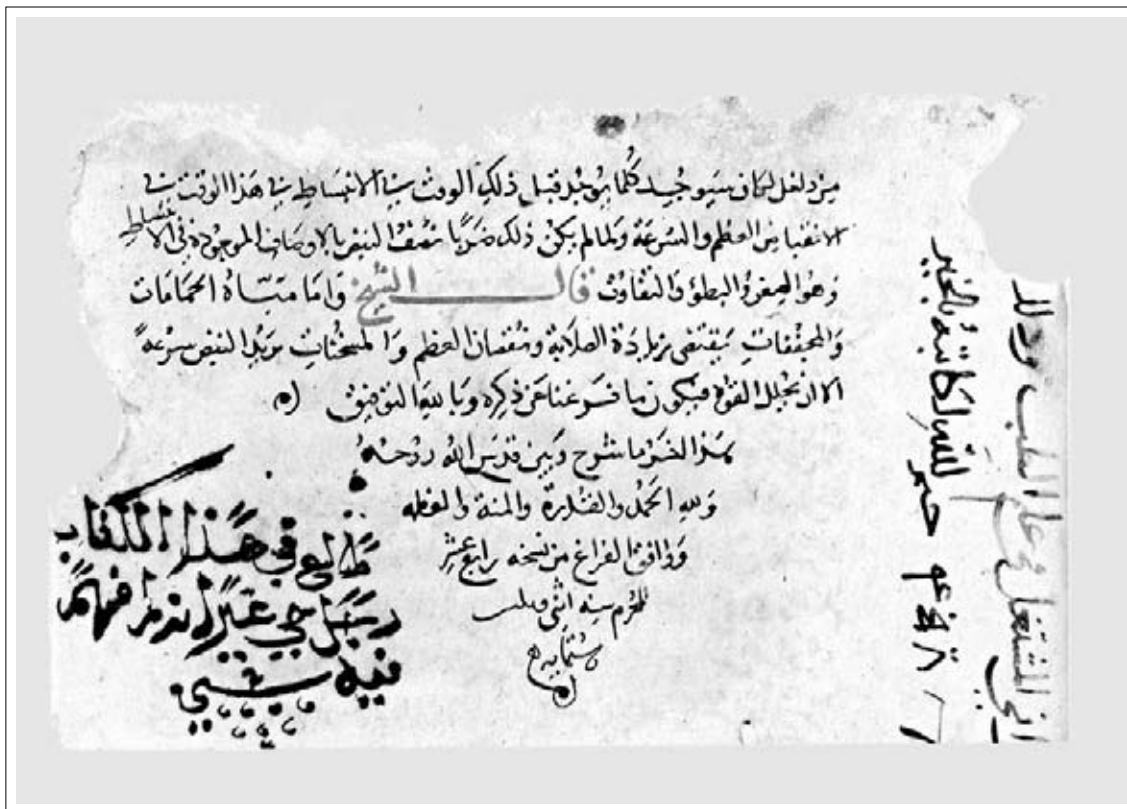 لكان سيوجد كلما يوجد قبل ذلك الوقت في الانبساط في هذا الوقت في
العظم والسرعة ولما لم يكن ذلك بالاوصاف الموجودة في الانبساط
وهو الصغر والبطؤ والتفاوت قال الشيخ واما مياه الحمامات
والمجففات بزيادة الصلابة ونقصان العظم والمسخنات النبض سرعة
الا ان تحلل القوة فيكون ما فرغنا عن ذكره وبالله التوفيق
هذا اخر ما شرح وبين قدس الله روحه
ولله الحمد والقدرة والمنة والعظمه
ووافق الفراغ من نسخه رابع عشر
المحرم سنه اثني
وستمايه
طالع في هذا الكتاب
رجل غير انه ما فهم
فيه شي
كاتبه بالخير
المشتغل في علم الطب